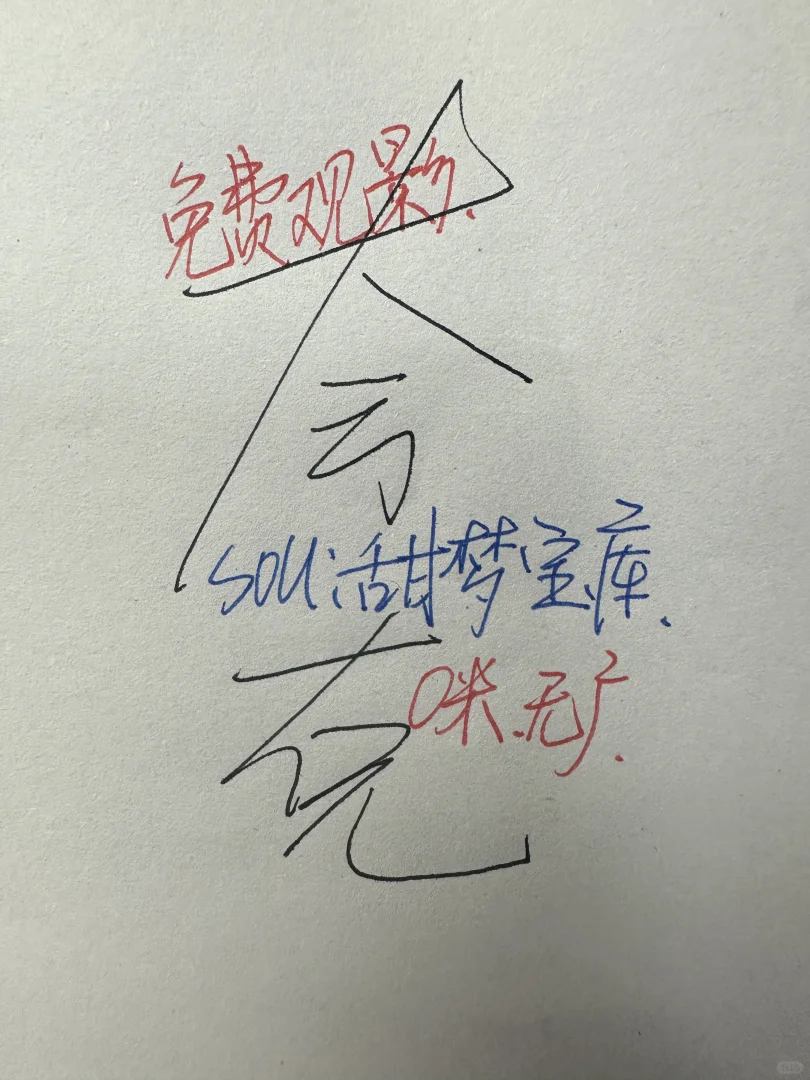 免费观影.
会
sou:甜梦宝库.
0咪.无广.